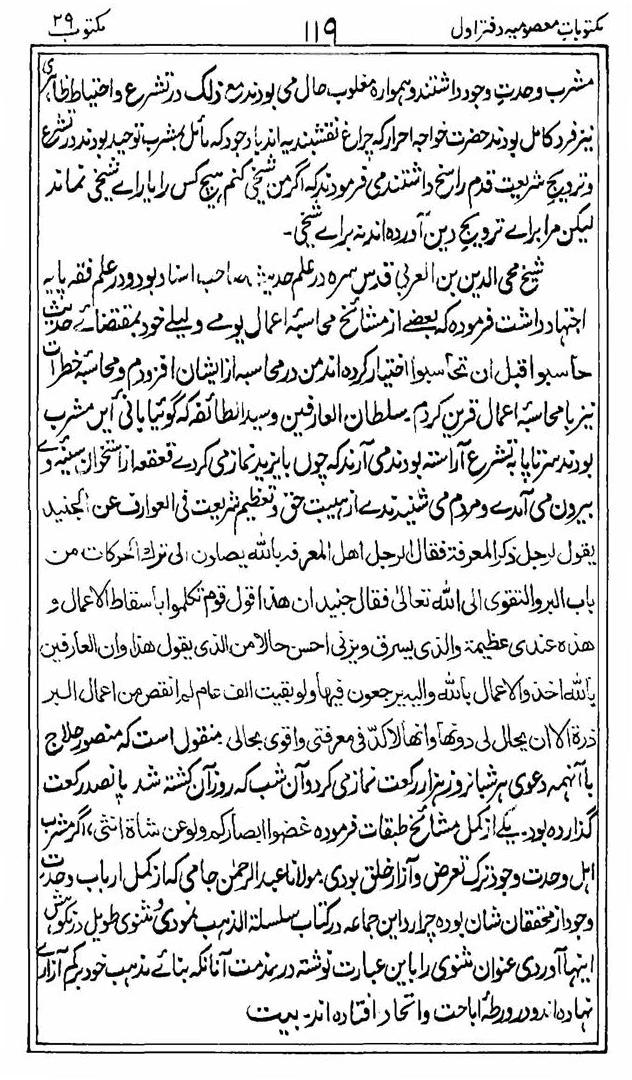 مکتوبات معصومیہ دفتر اول ۱۱۹ مکتوب ۲۹
مشرب وحدتِ وجود داشتند و ہموارہ مغلوب حال می بودند مع ذلک در تشرع و احتیاط ظاہری
نیز فرد کامل بودند حضرت خواجہ احرار کہ چراغ نقشبندیہ اند با وجود کہ مائل بمشرب توحید بودند در تشرع
و ترویج شریعت قدم راسخ داشتند می فرمودند کہ اگر من شیخی کنم ہیچ کس را یارائے شیخی نماند
لیکن مرا برائے ترویج دین آوردہ اند نہ برائے شیخی۔
شیخ محی الدین بن العربی قدس سرہ در علم حدیث صاحب اسناد بود و در علم فقہ پایہ
اجتہاد داشت فرمودہ کہ بعضے از مشائخ محاسبۂ اعمال یومے و لیلے خود بمقتضائے حدیث
حاسبوا قبل ان تحاسبوا اختیار کردہ اند من در محاسبہ از ایشان افزودم و محاسبۂ خطرات
نیز با محاسبۂ اعمال قرین کردم۔ سلطان العارفین و سید الطائفہ کہ گوئیا بانی ایں مشرب
بودند سرتاپا بہ تشرع آراستہ بودند می آرند کہ چوں بایزید نماز می کردے قعقعہ از استخوان سینۂ وے
بیرون می آمدے و مردم می شنیدندے از ہیبت حق و تعظیم شریعت فی العوارف عن الجنید
یقول لرجل ذکر المعرفة فقال الرجل اهل المعرفة بالله یصلون الی ترك الحرکات من
باب البر والتقوی الی الله تعالیٰ فقال جنید ان هذا قول قوم تکلموا باسقاط الاعمال و
هذه عندی عظیمة والذی یسرق ویزنی احسن حالا من الذی یقول هذا وان العارفین
بالله اخذ والاعمال بالله والیه یرجعون فیها ولو بقیت الف عام لم انقص من اعمال البر
ذرة الا ان یحال لی دونها وانها لاکد فی معرفتی واقوی بحالی۔ منقول است کہ منصور حلاج
با آنہمہ دعوی ہر شبانروز ہزار رکعت نماز می کرد و آن شب کہ روز آن کشتہ شد پانصد رکعت
گذاردہ بود۔ یکے از کمل مشائخ طبقات فرمودہ غضوا ابصارکم ولو عن شاة انثی، اگر مشرب
اہل وحدت وجود ترک تعرض و آزار خلق بودی۔ مولانا عبد الرحمٰن جامی کہ از کمل ارباب وحدت
وجود از محققان شان بودہ چرا رد این جماعہ در کتاب سلسلة الذہب نمودی و مثنوی طویل در نکوہش
اینہا آوردی عنوان مثنوی را باین عبارت نوشتہ در مذمت آنانکہ بنائے مذہب خود بر کم آزاری
نہادہ اند و در ورطۂ اباحت و اتحاد افتادہ اند۔ بیت